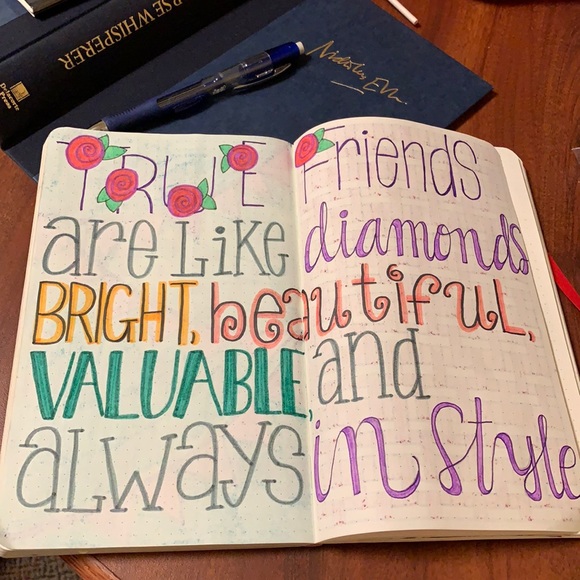 HORSE WHISPERER
Delacorte
Press
Nicholas Evans
TRUE Friends
are LiKe diamonds
BRIGHT, beautiful,
VALUABLE, and
always in style